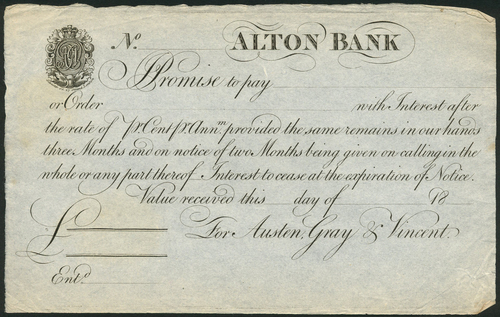 No. ALTON BANK
Promise to pay
or Order with Interest after
the rate of pr. Cent pr. Annm. provided the same remains in our hands
three Months and on notice of two Months being given on calling in the
whole or any part thereof Interest to cease at the expiration of Notice.
Value received this day of 18
£ For Austen, Gray & Vincent.
Entd.